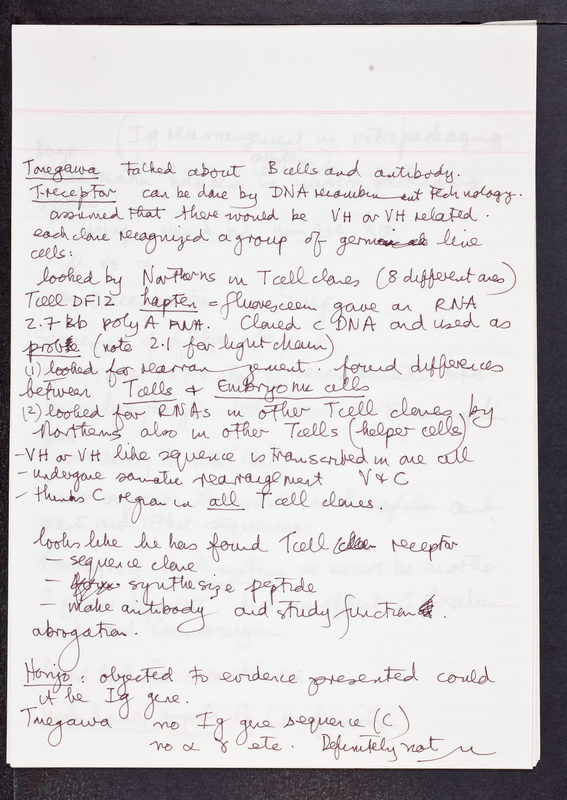 Tonegawa talked about B cells and antibody.
T-receptor can be done by DNA recombin ent technology.
assumed that there would be VH or VH related.
each clone recognized a group of germ line
cells:
looked by Northerns in T cell clones (8 different ones)
T cell DF12 hapten = fluorescein gave an RNA
2.7 kb poly A RNA. Cloned c DNA and used as
probe (note 2.1 for light chain)
(1) looked for rearran gement. found differences
between T cells & Embryonic cells
(2) looked for RNAs in other T cell clones by
Northerns also in other T cells (helper cells)
- VH or VH like sequence is transcribed in one cell
- undergone somatic rearrangement V & C
- thinks C region in all T cell clones.
looks like he has found T cell receptor
- sequence clone
- synthesize peptide
- make antibody and study function
abrogation.
Honjo: objected to evidence presented could
it be Ig gene.
Tonegawa no Ig gene sequence (C)
no α γ etc. Definitely not μ